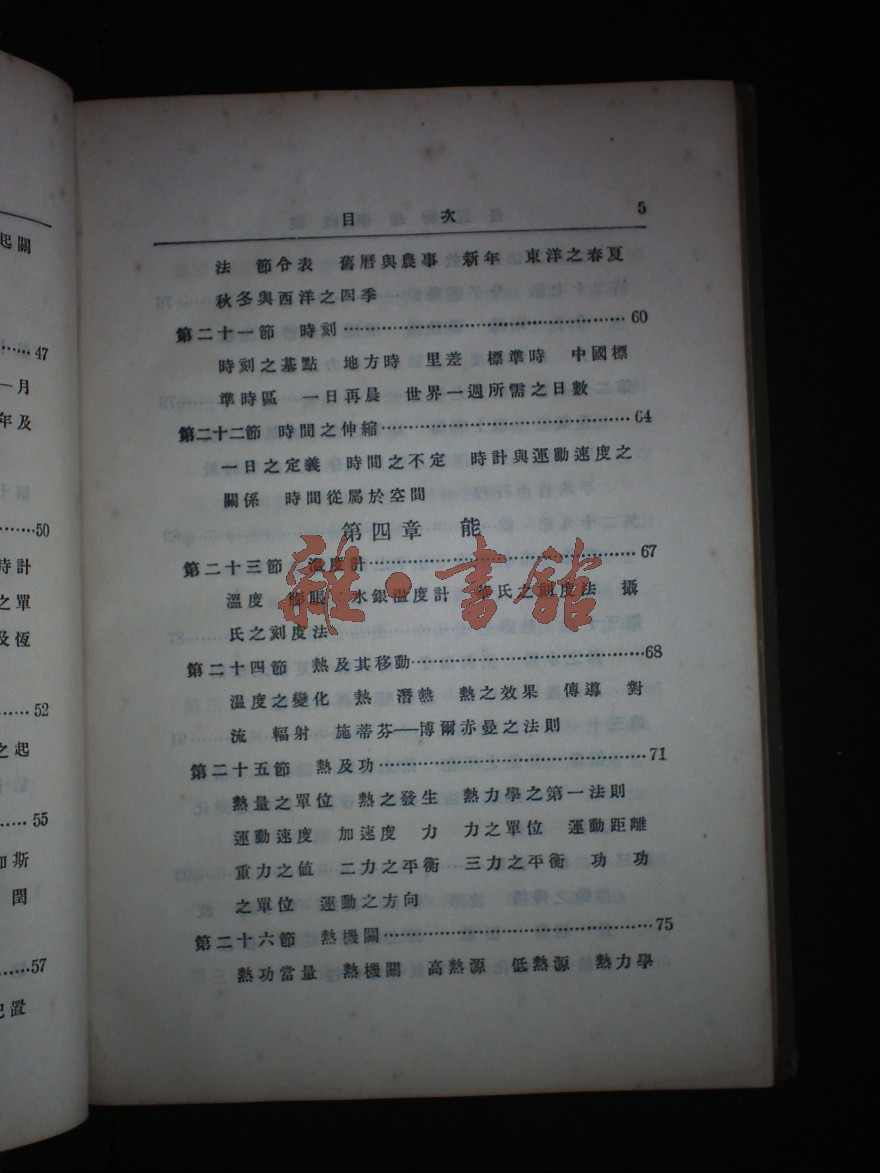 起關
47
一月
年及
50
時計
之單
及恆
52
之起
55
如斯
閏
57
置
目 次 5
法 節令表 舊曆與農事 新年 東洋之春夏
秋冬與西洋之四季
第二十一節 時刻…………………………………60
時刻之基點 地方時 里差 標準時 中國標
準時區 一日再晨 世界一週所需之日數
第二十二節 時間之伸縮……………………………64
一日之定義 時間之不定 時計與運動速度之
關係 時間從屬於空間
第四章 能
第二十三節 溫度計…………………………………67
溫度 膨脹 水銀溫度計 華氏之刻度法 攝
氏之刻度法
第二十四節 熱及其移動……………………………68
溫度之變化 熱 潛熱 熱之效果 傳導 對
流 輻射 施蒂芬——博爾赤曼之法則
第二十五節 熱及功…………………………………71
熱量之單位 熱之發生 熱力學之第一法則
運動速度 加速度 力 力之單位 運動距離
重力之値 二力之平衡 三力之平衡 功 功
之單位 運動之方向
第二十六節 熱機關…………………………………75
熱功當量 熱機關 高熱源 低熱源 熱力學
雜·書館